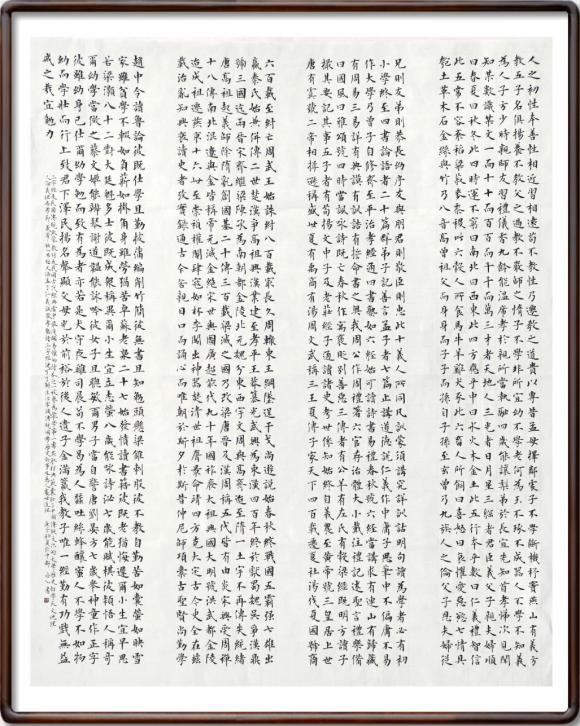 人之初性本善性相近習相遠苟不教性乃遷教之道貴以專昔孟母擇鄰處子不學斷機杼竇燕山有義方
教五子名俱揚養不教父之過教不嚴師之惰子不學非所宜幼不學老何為玉不琢不成器人不學不知義
為人子方少時親師友習禮儀香九齡能溫席孝於親所當執融四歲能讓梨弟於長宜先知首孝悌次見聞
知某數識某文一而十十而百百而千千而萬三才者天地人三光者日月星三綱者君臣義父子親夫婦順
曰春夏曰秋冬此四時運不窮曰南北曰西東此四方應乎中曰水火木金土此五行本乎數曰仁義禮智信
此五常不容紊稻粱菽麥黍稷此六穀人所食馬牛羊雞犬豕此六畜人所飼曰喜怒曰哀懼愛惡欲七情具
匏土革木石金絲與竹乃八音高曾祖父而身身而子子而孫自子孫至玄曾乃九族人之倫父子恩夫婦從
兄則友弟則恭長幼序友與朋君則敬臣則忠此十義人所同凡訓蒙須講究詳訓詁明句讀為學者必有初
小學終至四書論語者二十篇群弟子記善言孟子者七篇止講道德說仁義作中庸子思筆中不偏庸不易
作大學乃曾子自修齊至平治孝經通四書熟如六經始可讀詩書易禮春秋號六經當講求有連山有歸藏
有周易三易詳有典謨有訓誥有誓命書之奧我周公作周禮著六官存治體大小戴注禮記述聖言禮樂備
曰國風曰雅頌號四詩當諷詠詩既亡春秋作寓褒貶別善惡三傳者有公羊有左氏有穀梁經既明方讀子
撮其要記其事五子者有荀揚文中子及老莊經子通讀諸史考世系知終始自羲農至黃帝號三皇居上世
唐有虞號二帝相揖遜稱盛世夏有禹商有湯周文武稱三王夏傳子家天下四百載遷夏社湯伐夏國號商
六百載至紂亡周武王始誅紂八百載最長久周轍東王綱墜逞干戈尚遊說始春秋終戰國五霸強七雄出
嬴秦氏始兼併傳二世楚漢爭高祖興漢業建至孝平王莽篡光武興為東漢四百年終於獻蜀魏吳爭漢鼎
號三國迄兩晉宋齊繼梁陳承為南朝都金陵北元魏分東西宇文周與高齊迨至隋一土宇不再傳失統緒
唐高祖起義師除隋亂創國基二十傳三百載梁滅之國乃改梁唐晉及漢周稱五代皆有由炎宋興受周禪
十八傳南北混遼與金皆稱帝元滅金絕宋世輿圖廣超前代九十年國祚廢太祖興國大明號洪武都金陵
迨成祖遷燕京十六世至崇禎權閹肆寇如林李闖出神器焚清世祖膺景命靖四方克大定古今史全在茲
載治亂知興衰讀史者考實錄通古今若親目口而誦心而惟朝於斯夕於斯昔仲尼師項橐古聖賢尚勤學
趙中令讀魯論彼既仕學且勤披蒲編削竹簡彼無書且知勉頭懸梁錐刺股彼不教自勤苦如囊螢如映雪
家雖貧學不輟如負薪如掛角身雖勞猶苦卓蘇老泉二十七始發憤讀書籍彼既老猶悔遲爾小生宜早思
若梁灝八十二對大廷魁多士彼既成眾稱異爾小生宜立志瑩八歲能詠詩泌七歲能賦棋彼穎悟人稱奇
爾幼學當傚之蔡文姬能辨琴謝道韞能詠吟彼女子且聰敏爾男子當自警唐劉晏方七歲舉神童作正字
彼雖幼身已仕爾幼學勉而致有為者亦若是犬守夜雞司晨苟不學曷為人蠶吐絲蜂釀蜜人不學不如物
幼而學壯而行上致君下澤民揚名聲顯父母光於前裕於後人遺子金滿籯我教子唯一經勤有功戲無益
戒之哉宜勉力